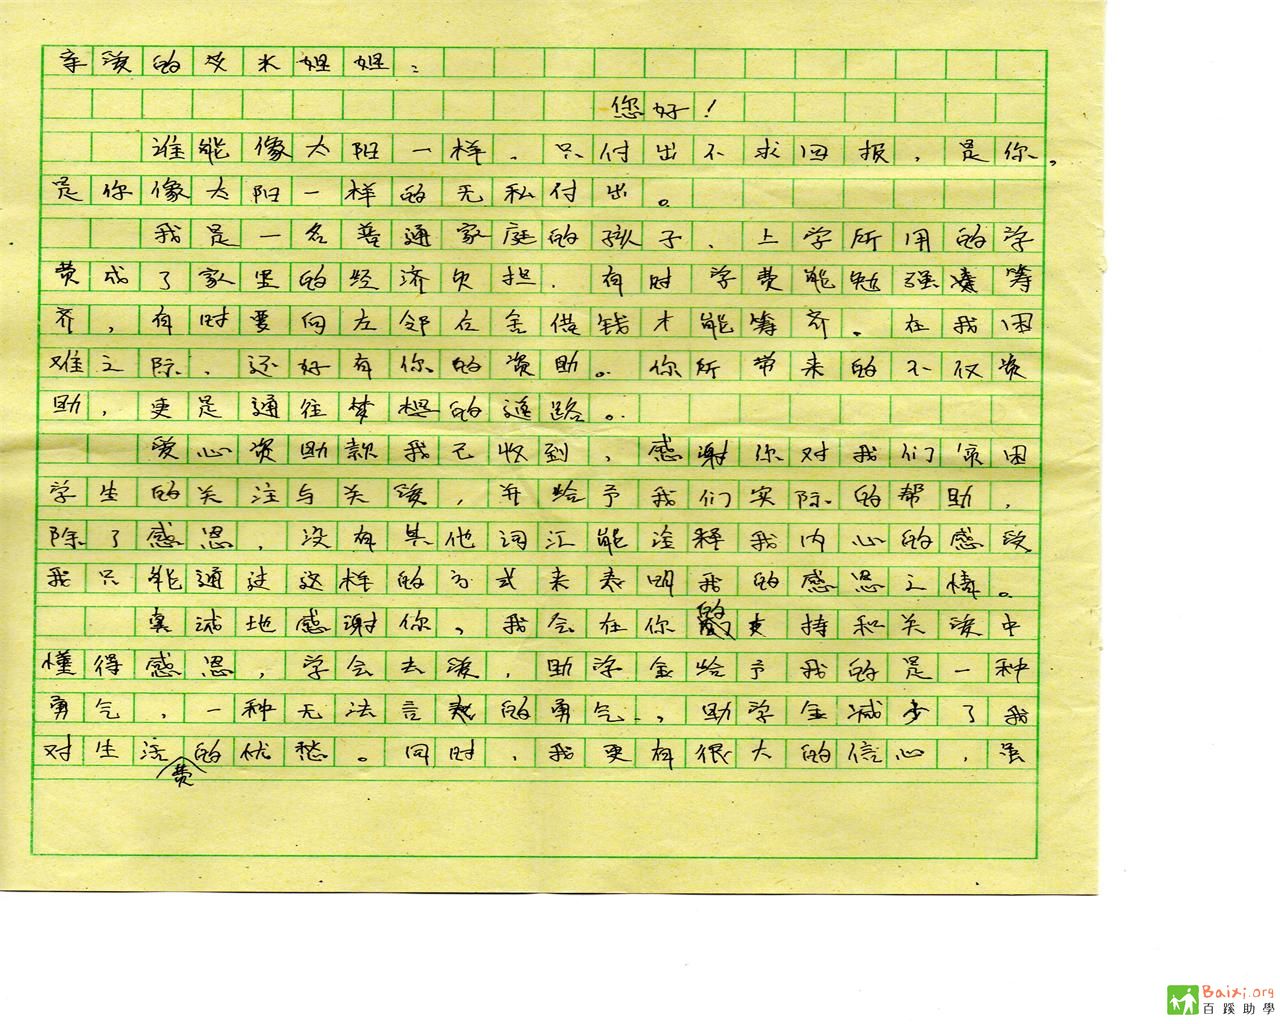 亲爱的艾米姐姐：
您好！
谁能像太阳一样，只付出不求回报，是你，
是你像太阳一样的无私付出。
我是一名普通家庭的孩子、上学所用的学
费成了家里的经济负担．有时学费能勉强凑筹
齐，有时要向左邻右舍借钱才能筹齐。在我困
难之际，还好有你的资助。你所带来的不仅资
助，更是通往梦想的道路。
爱心资助款我已收到，感谢你对我们贫困
学生的关注与关爱，并给予我们实际的帮助，
除了感恩，没有其他词汇能诠释我内心的感受
我只能通过这样的方式来表明我的感恩之情。
真诚地感谢你，我会在你的支持和关爱中
懂得感恩，学会去爱，助学金给予我的是一种
勇气，一种无法言表的勇气，助学金减少了我
对生活费的忧愁。同时，我更有很大的信心，虽
Baixi.org
百蹊助學